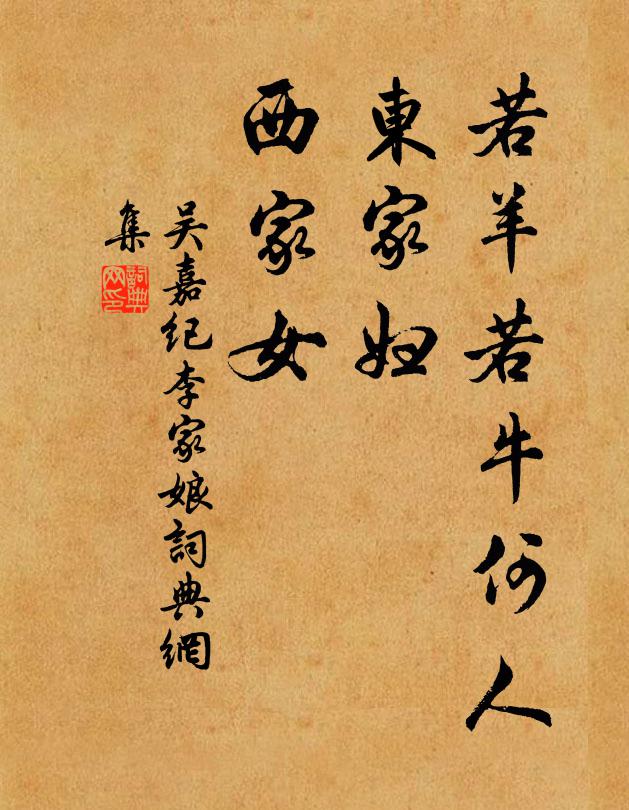 若羊若牛何人
東家妇
西家女
吴嘉纪李家娘詞典網
集
詞典
网印